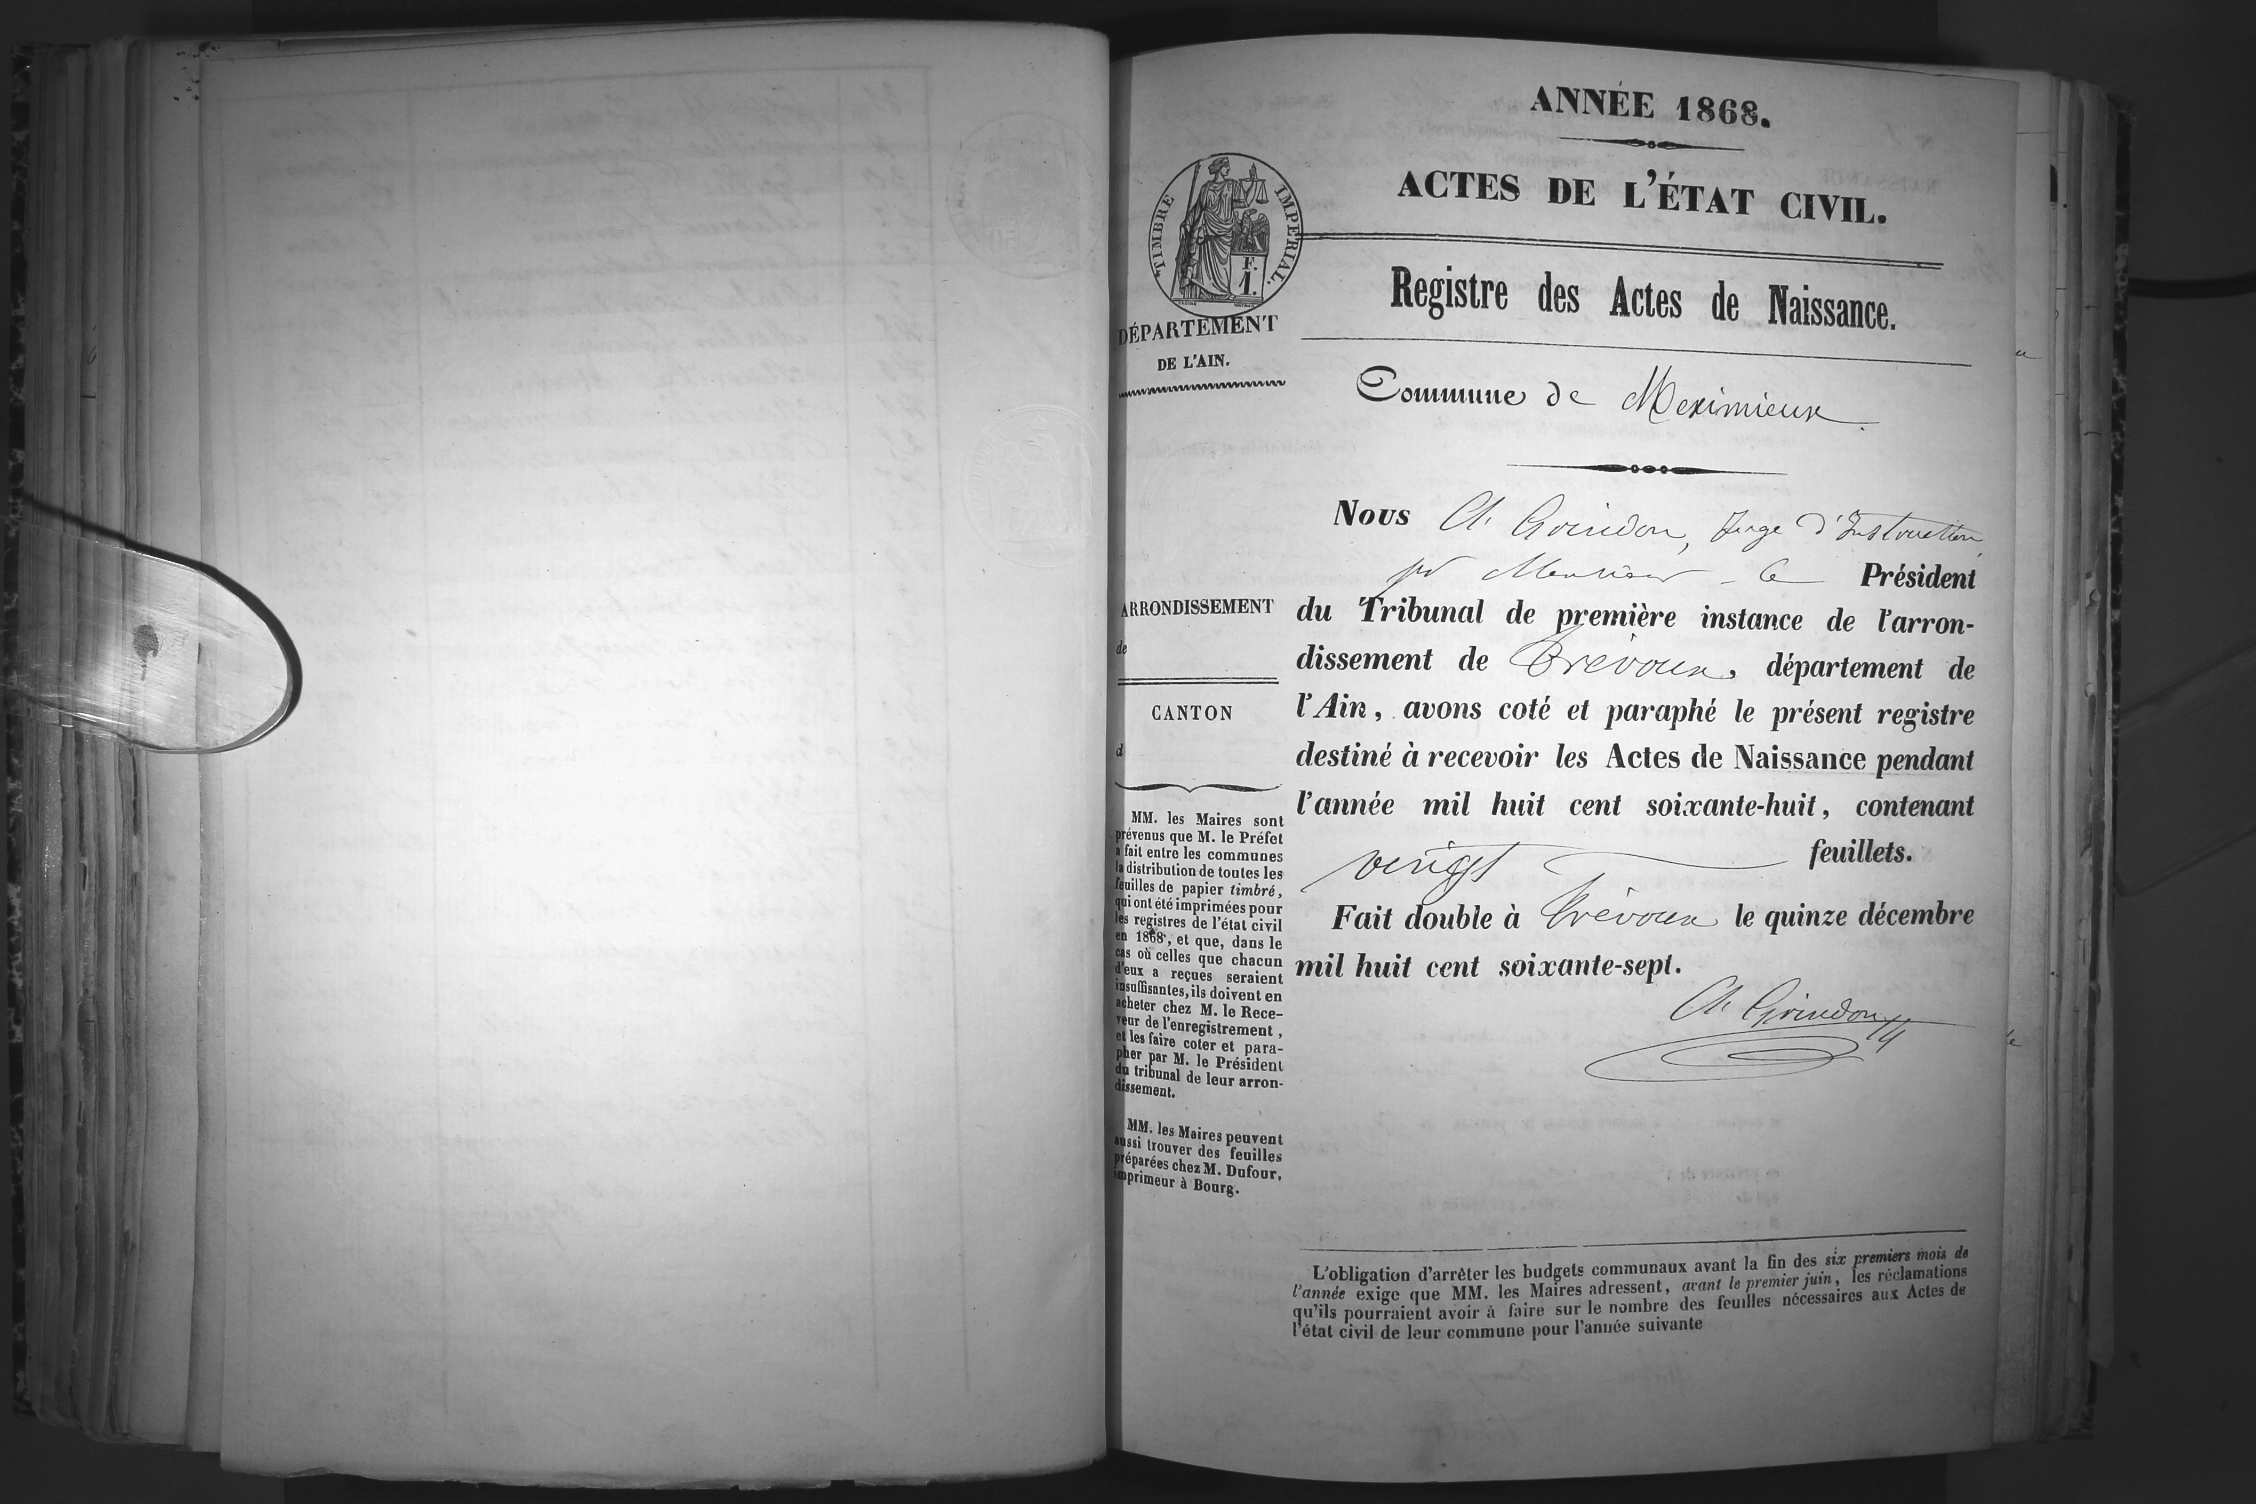 ANNÉE 1868.
ACTES DE L'ÉTAT CIVIL.
TIMBRE IMPÉRIAL.
F.
1.
Registre des Actes de Naissance.
DÉPARTEMENT
DE L'AIN.
Commune de Meximieux.
ARRONDISSEMENT
de
CANTON
d
MM. les Maires sont
prévenus que M. le Préfet
a fait entre les communes
la distribution de toutes les
feuilles de papier timbré,
qui ont été imprimées pour
les registres de l'état civil
en 1868, et que, dans le
cas où celles que chacun
d'eux a reçues seraient
insuffisantes, ils doivent en
acheter chez M. le Rece-
veur de l'enregistrement,
et les faire coter et para-
pher par M. le Président
du tribunal de leur arron-
dissement.
MM. les Maires peuvent
aussi trouver des feuilles
préparées chez M. Dufour,
imprimeur à Bourg.
Nous Ch. Grindon, Juge d'Instruction,
pr Monsieur le Président
du Tribunal de première instance de l'arron-
dissement de Trévoux, département de
l'Ain, avons coté et paraphé le présent registre
destiné à recevoir les Actes de Naissance pendant
l'année mil huit cent soixante-huit, contenant
vingt feuillets.
Fait double à Trévoux le quinze décembre
mil huit cent soixante-sept.
Ch. Grindon
L'obligation d'arrêter les budgets communaux avant la fin des six premiers mois de
l'année exige que MM. les Maires adressent, avant le premier juin, les réclamations
qu'ils pourraient avoir à faire sur le nombre des feuilles nécessaires aux Actes de
l'état civil de leur commune pour l'année suivante